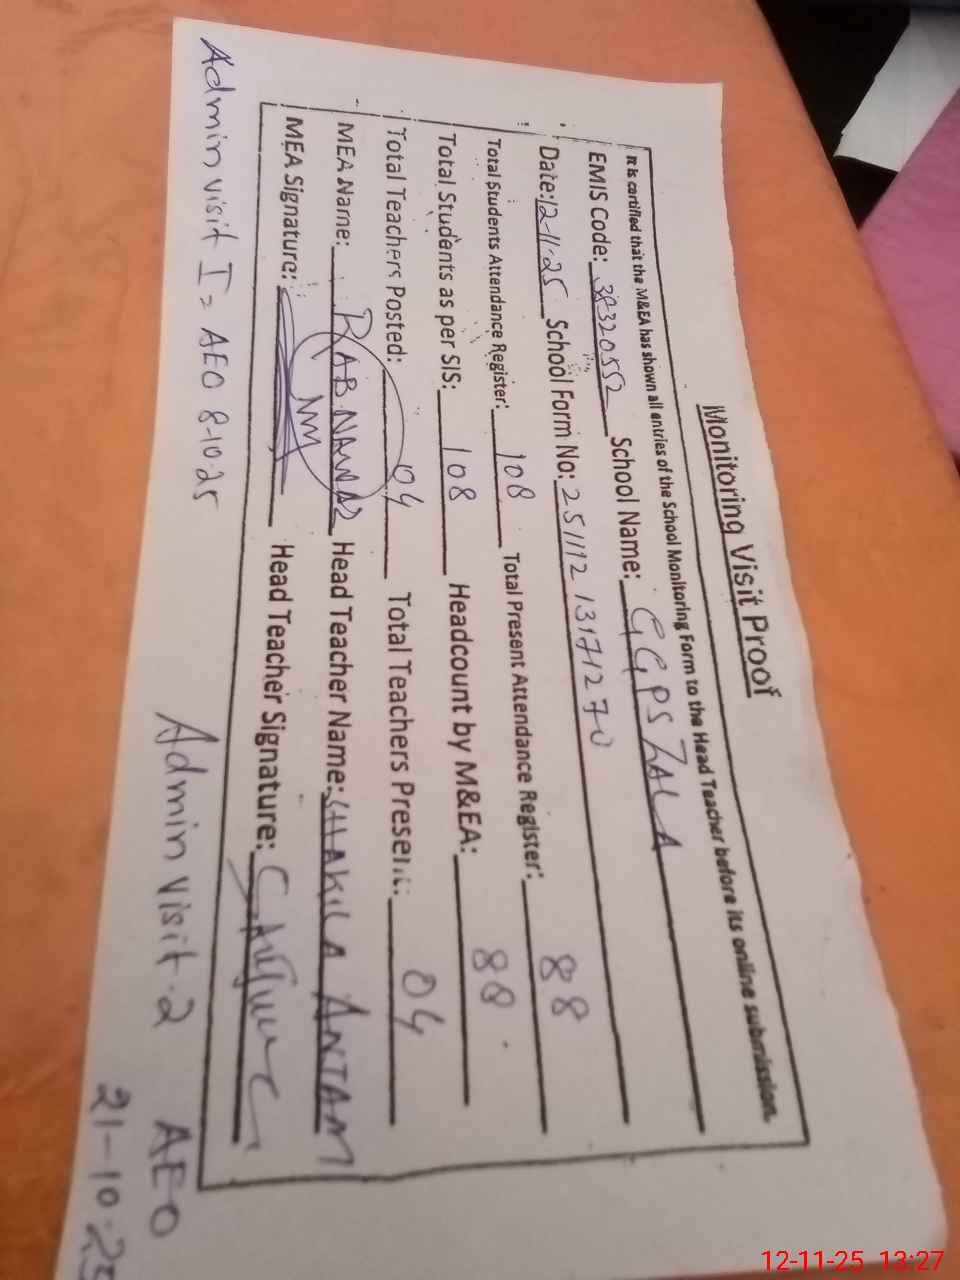 Monitoring Visit Proof
It is certified that the M&EA has shown all entries of the School Monitoring Form to the Head Teacher before its online submission.
EMIS Code: 38320552 School Name: GGPS ZALA
Date: 12-11-25 School Form No: 25111213171270
Total Students Attendance Register: 108 Total Present Attendance Register: 88
Total Students as per SIS: 108 Headcount by M&EA: 88
Total Teachers Posted: 04 Total Teachers Present: 04
MEA Name: RAB NAWAZ Head Teacher Name: SHAKILA
MEA Signature: Head Teacher Signature:
Admin visit I = AEO 8-10-25
Admin visit 2 AEO
21-10-25
12-11-25 13:27